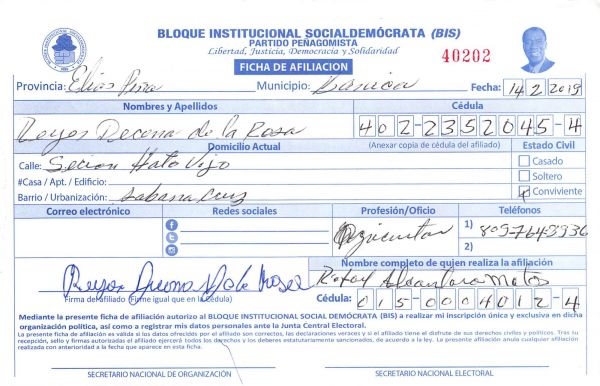 BLOQUE INSTITUCIONAL SOCIALDEMÓCRATA (BIS)
PARTIDO PEÑAGOMISTA
Libertad, Justicia, Democracia y Solidaridad
40202
FICHA DE AFILIACION
Provincia: Elias Piña Municipio: Banica Fecha: 14/2/2019
Nombres y Apellidos Cédula
Reyes Decena de la Rosa 402-2352045-4
Domicilio Actual (Anexar copia de cédula del afiliado) Estado Civil
Calle: Seccion Hato Viejo Casado
#Casa / Apt. / Edificio: Soltero
Barrio / Urbanización: Sabana Cruz Conviviente
Correo electrónico Redes sociales Profesión/Oficio Teléfonos
Agricultor 1) 809-764-3936
2)
Nombre completo de quien realiza la afiliación
Reyes Decena de la Rosa Rafael Alcantara Mateo
Firma del Afiliado (Firme igual que en la Cédula) Cédula: 015-0004012-4
Mediante la presente ficha de afiliación autorizo al BLOQUE INSTITUCIONAL SOCIAL DEMÓCRATA (BIS) a realizar mi inscripción única y exclusiva en dicha
organización política, así como a registrar mis datos personales ante la Junta Central Electoral.
La presente ficha de afiliación es válida si los datos ofrecidos por el afiliado son correctos, las declaraciones veraces y si el afiliado tiene el disfrute de sus derechos civiles y políticos. Tras su
recepción, sello y firmas autorizadas el afiliado ejercerá todos los derechos y los deberes estatutariamente sancionados, de acuerdo a la ley. La presente afiliación anula cualquier afiliación
realizada con anterioridad a la fecha que aparece en esta ficha.
SECRETARIO NACIONAL DE ORGANIZACIÓN SECRETARIO NACIONAL ELECTORAL